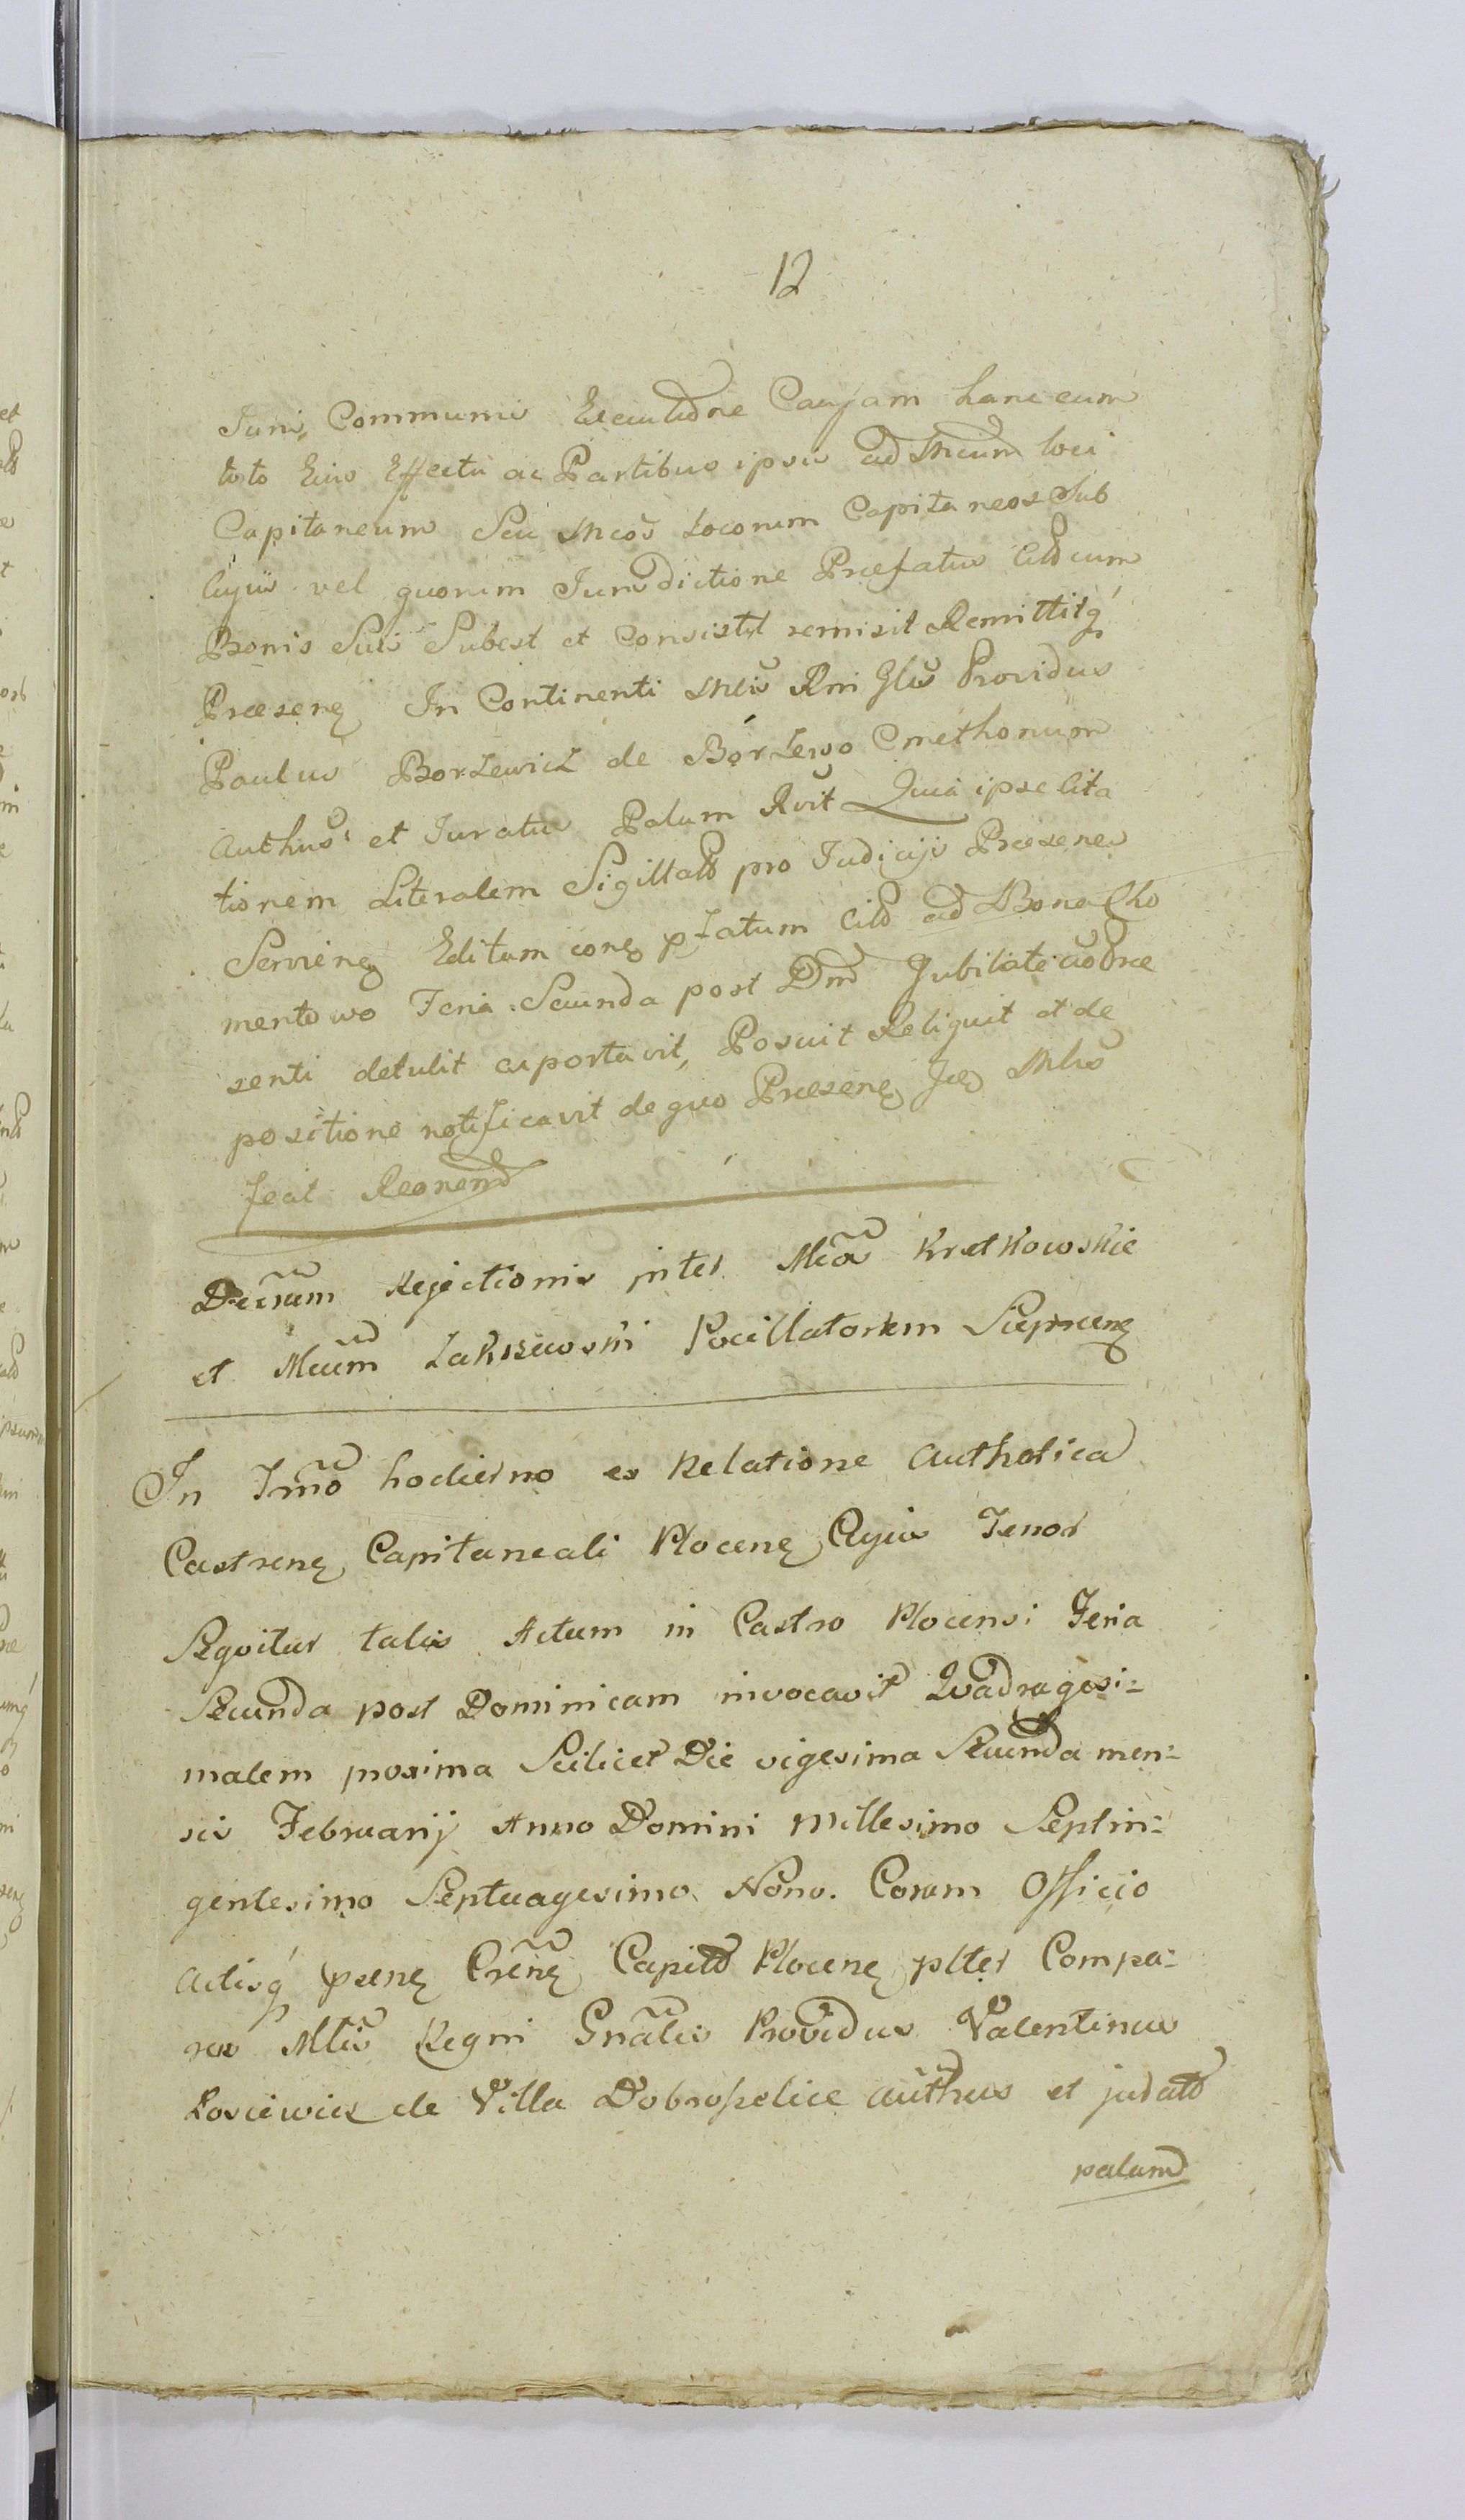 12
Juris Communis Executione Causam hanc cum
toto Eius Effectu ac Partibus ipsis ad Mcum loci
Capitaneum Seu Mcos Locorum Capitaneos Sub
Cujus vel quorum Jurisdictione Præfatus Citt cum
Bonis Suis Subest et Consistit remisit Remittitq
Præsenȩ In Continenti Mlis Rni Glis Providus
Paulus Borzewicz de Borzewo Cmethonum
authus et Juratus Palum Rvit Quia ipse Cita
tionem Literalem Sigillatt pro Judicijs Præsenes
Servienȩ Editam conȩ pzatum Citt ad Bona Cho
mentowo Feria Secunda post Dnm Jubilate in Præ
senti detulit aportavit, Posuit Reliquit et de
positione notificavit de quo Præsenȩ Jcȩ Mlis
fecit Reonem
Decrum Rejectionis inter Mcã Kretkowskie
et Mcum Zakrzewski Pocillatorem Sieprcenȩ
In Tmo hodierno ex Relatione Authotica
Castrenȩ Capitaneali Plocenȩ Cujus Tenor
Seqvitur talis Actum in Castro Plocensi Feria
Secunda post Dominicam invocavit Qvadragesi:
malem proxima Scilicet Die vigesima Secunda men:
sis Februarij Anno Domini Millesimo Septin:
gentesimo Septuagesimo Nono. Coram Officio
Actisq́ psenȩ Crenȩ Capitt Plocenȩ plter Compa:
rens Mtis Regni Gnalis Providus Valentinus
Losiewicz de Villa Dobropolice authus et juratt
palam